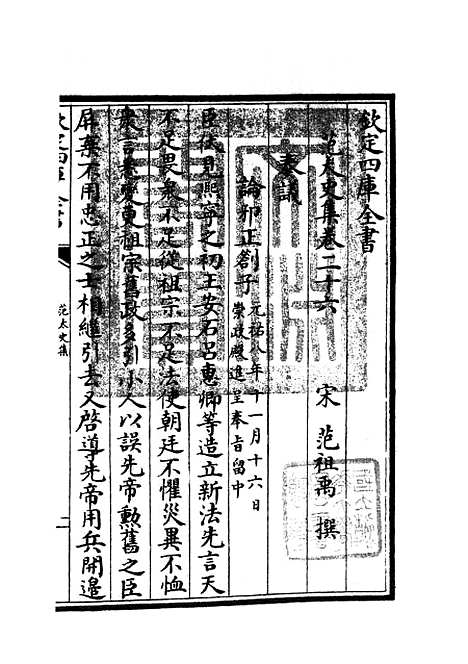 欽定四庫全書
范太史集卷二十六
宋 范祖禹 撰
奏議
論邪正劄子元祐八年十一月十六日崇政殿進呈奉旨留中
臣伏見熙寧之初王安石呂惠卿等造立新法先言天
不足畏衆不足從祖宗不足法使朝廷不懼災異不恤
衆言悉變更祖宗舊政多引小人以誤先帝勲舊之臣
屏棄不用忠正之士相繼引去又啓導先帝用兵開邊
欽定四庫全書
范太史集